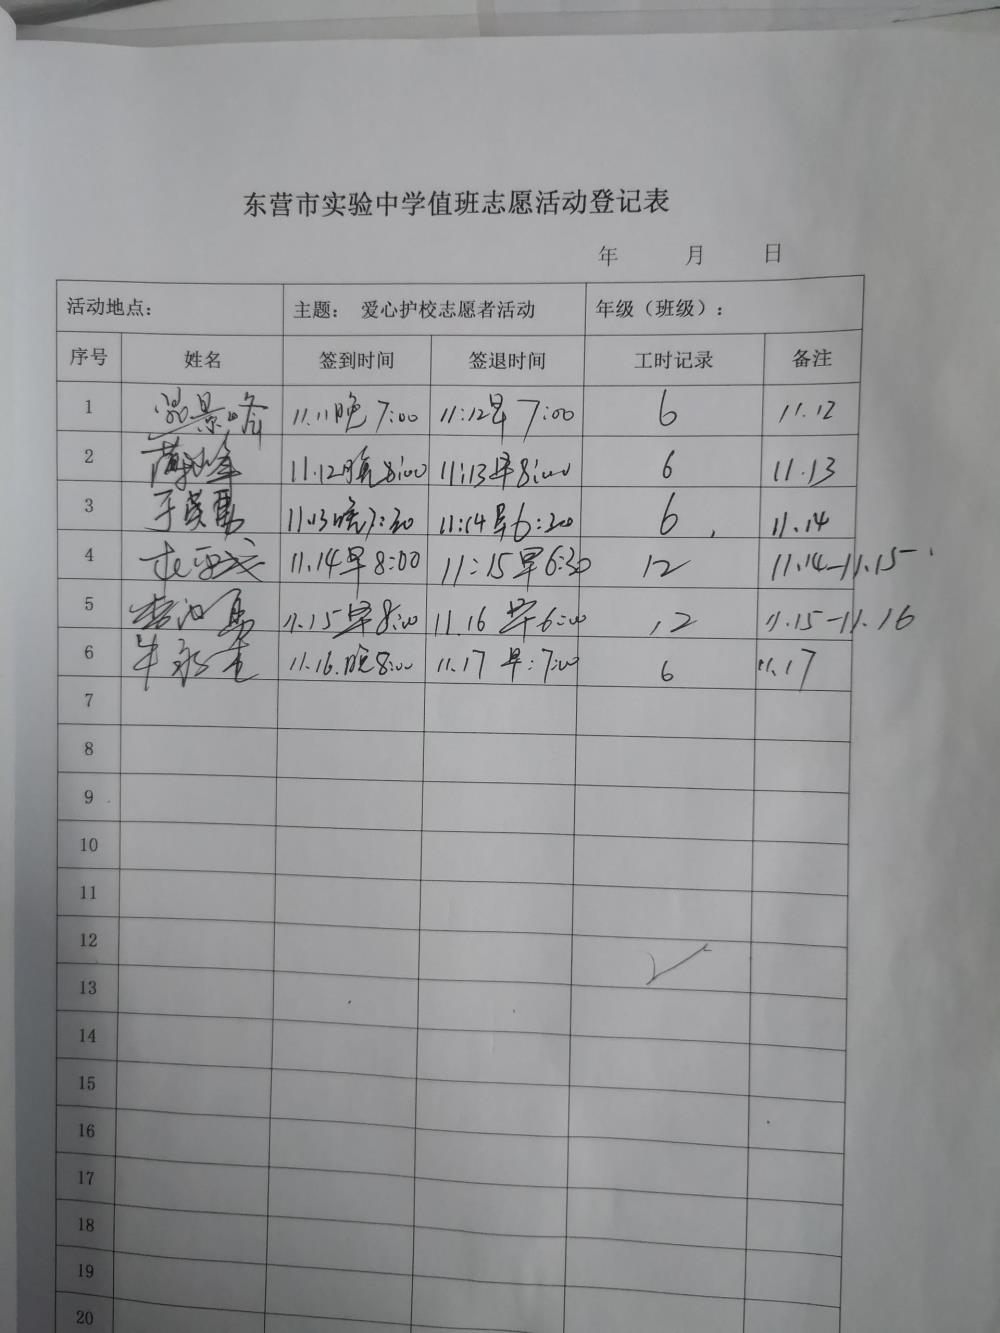 东营市实验中学值班志愿活动登记表
年 月 日
活动地点： 主题： 爱心护校志愿者活动 年级（班级）：
序号 姓名 签到时间 签退时间 工时记录 备注
1 11.11晚7:00 11:12早7:00 6 11.12
2 11.12晚8:00 11:13早8:00 6 11.13
3 于英勇 11.13晚7:30 11:14早6:20 6 11.14
4 11.14早8:00 11:15早6:30 12 11.14-11.15
5 11.15早8:00 11.16早6:00 12 11.15-11.16
6 牛永 11.16.晚8:00 11.17早:7:00 6 11.17
7
8
9
10
11
12
13
14
15
16
17
18
19
20